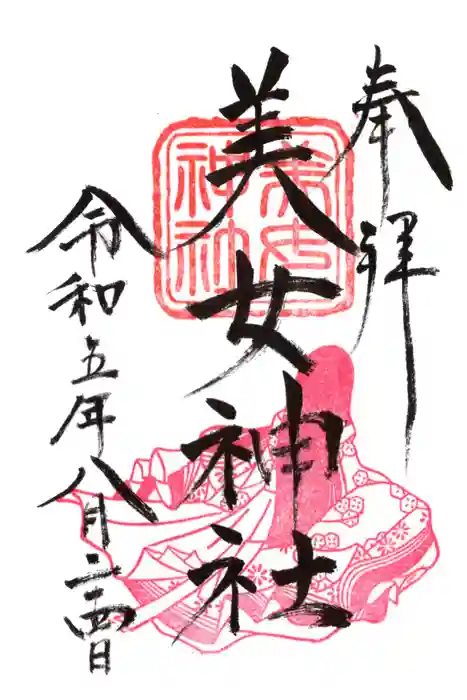 奉拝
美女神社
美女神社
令和五年八月二十四日